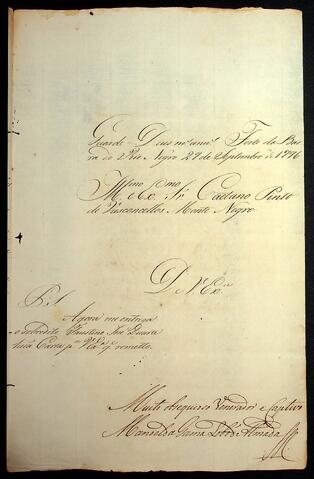 Guarde Deos m.s ann.s Forte da Bar
ra do Rio Negro 27 de Septembro de 1796
Ill.mo e Ex.mo Sr. Caetano Pinto
de Vasconcellos Monte Negro
De V. Ex.a
P. S.
Agora me entrega
o sobredito Faustino Joze Duarte
huã Carta p.a V. Ex.a q' remetto
Muito obsequiozo Venerador e Captivo
Manoel da Gama Lobo de Almada